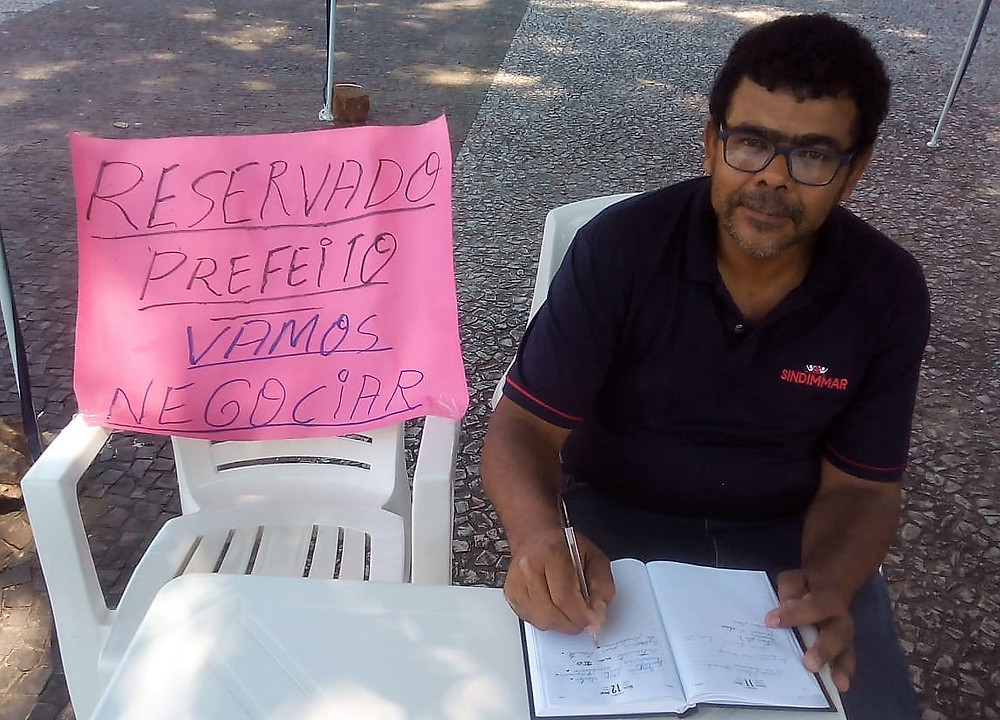 RESERVADO
PREFEITO
VAMOS
NEGOCIAR
SINDIMMAR
12
11